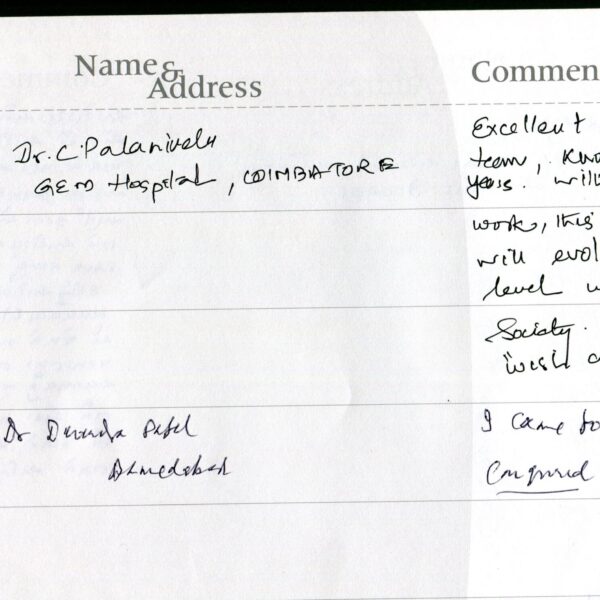 Name &
Address
Commen
Dr. C. Palanivelu
GEM Hospital, COIMBATORE
Excellent
team, Kno
years. will
work, this
will evol
level w
Society.
wish a
Dr Devendra Patel
Ahmedabad
I came to
Conquered